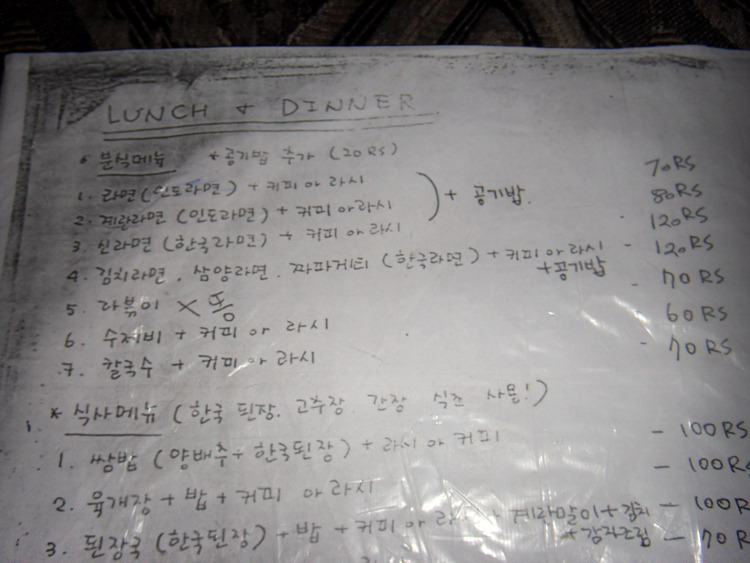 LUNCH + DINNER
* 분식메뉴 * 공기밥 추가 (20RS)
1. 라면(인도라면) + 커피 아 라시 70RS
2. 계란라면 (인도라면) + 커피 아 라시 + 공기밥. 80RS
3. 신라면 (한국라면) + 커피 아 라시 - 120RS
4. 김치라면. 삼양라면. 짜파게티 (한국라면) + 커피 아 라시 - 120RS
+ 공기밥
5. 라볶이 - 70RS
6. 수제비 + 커피 아 라시 60RS
7. 칼국수 + 커피 아 라시 - 70RS
* 식사메뉴 (한국 된장. 고추장. 간장
1. 쌈밥 (양배추 + 한국된장) + 라시 아 커피 - 100RS
2. 육개장 + 밥 + 커피 아 라시 - 100RS
3. 된장국 (한국된장) + 밥 + 커피 아 라시 + 계란말이 + 김치 - 100R
+ 감자조림 - 70R